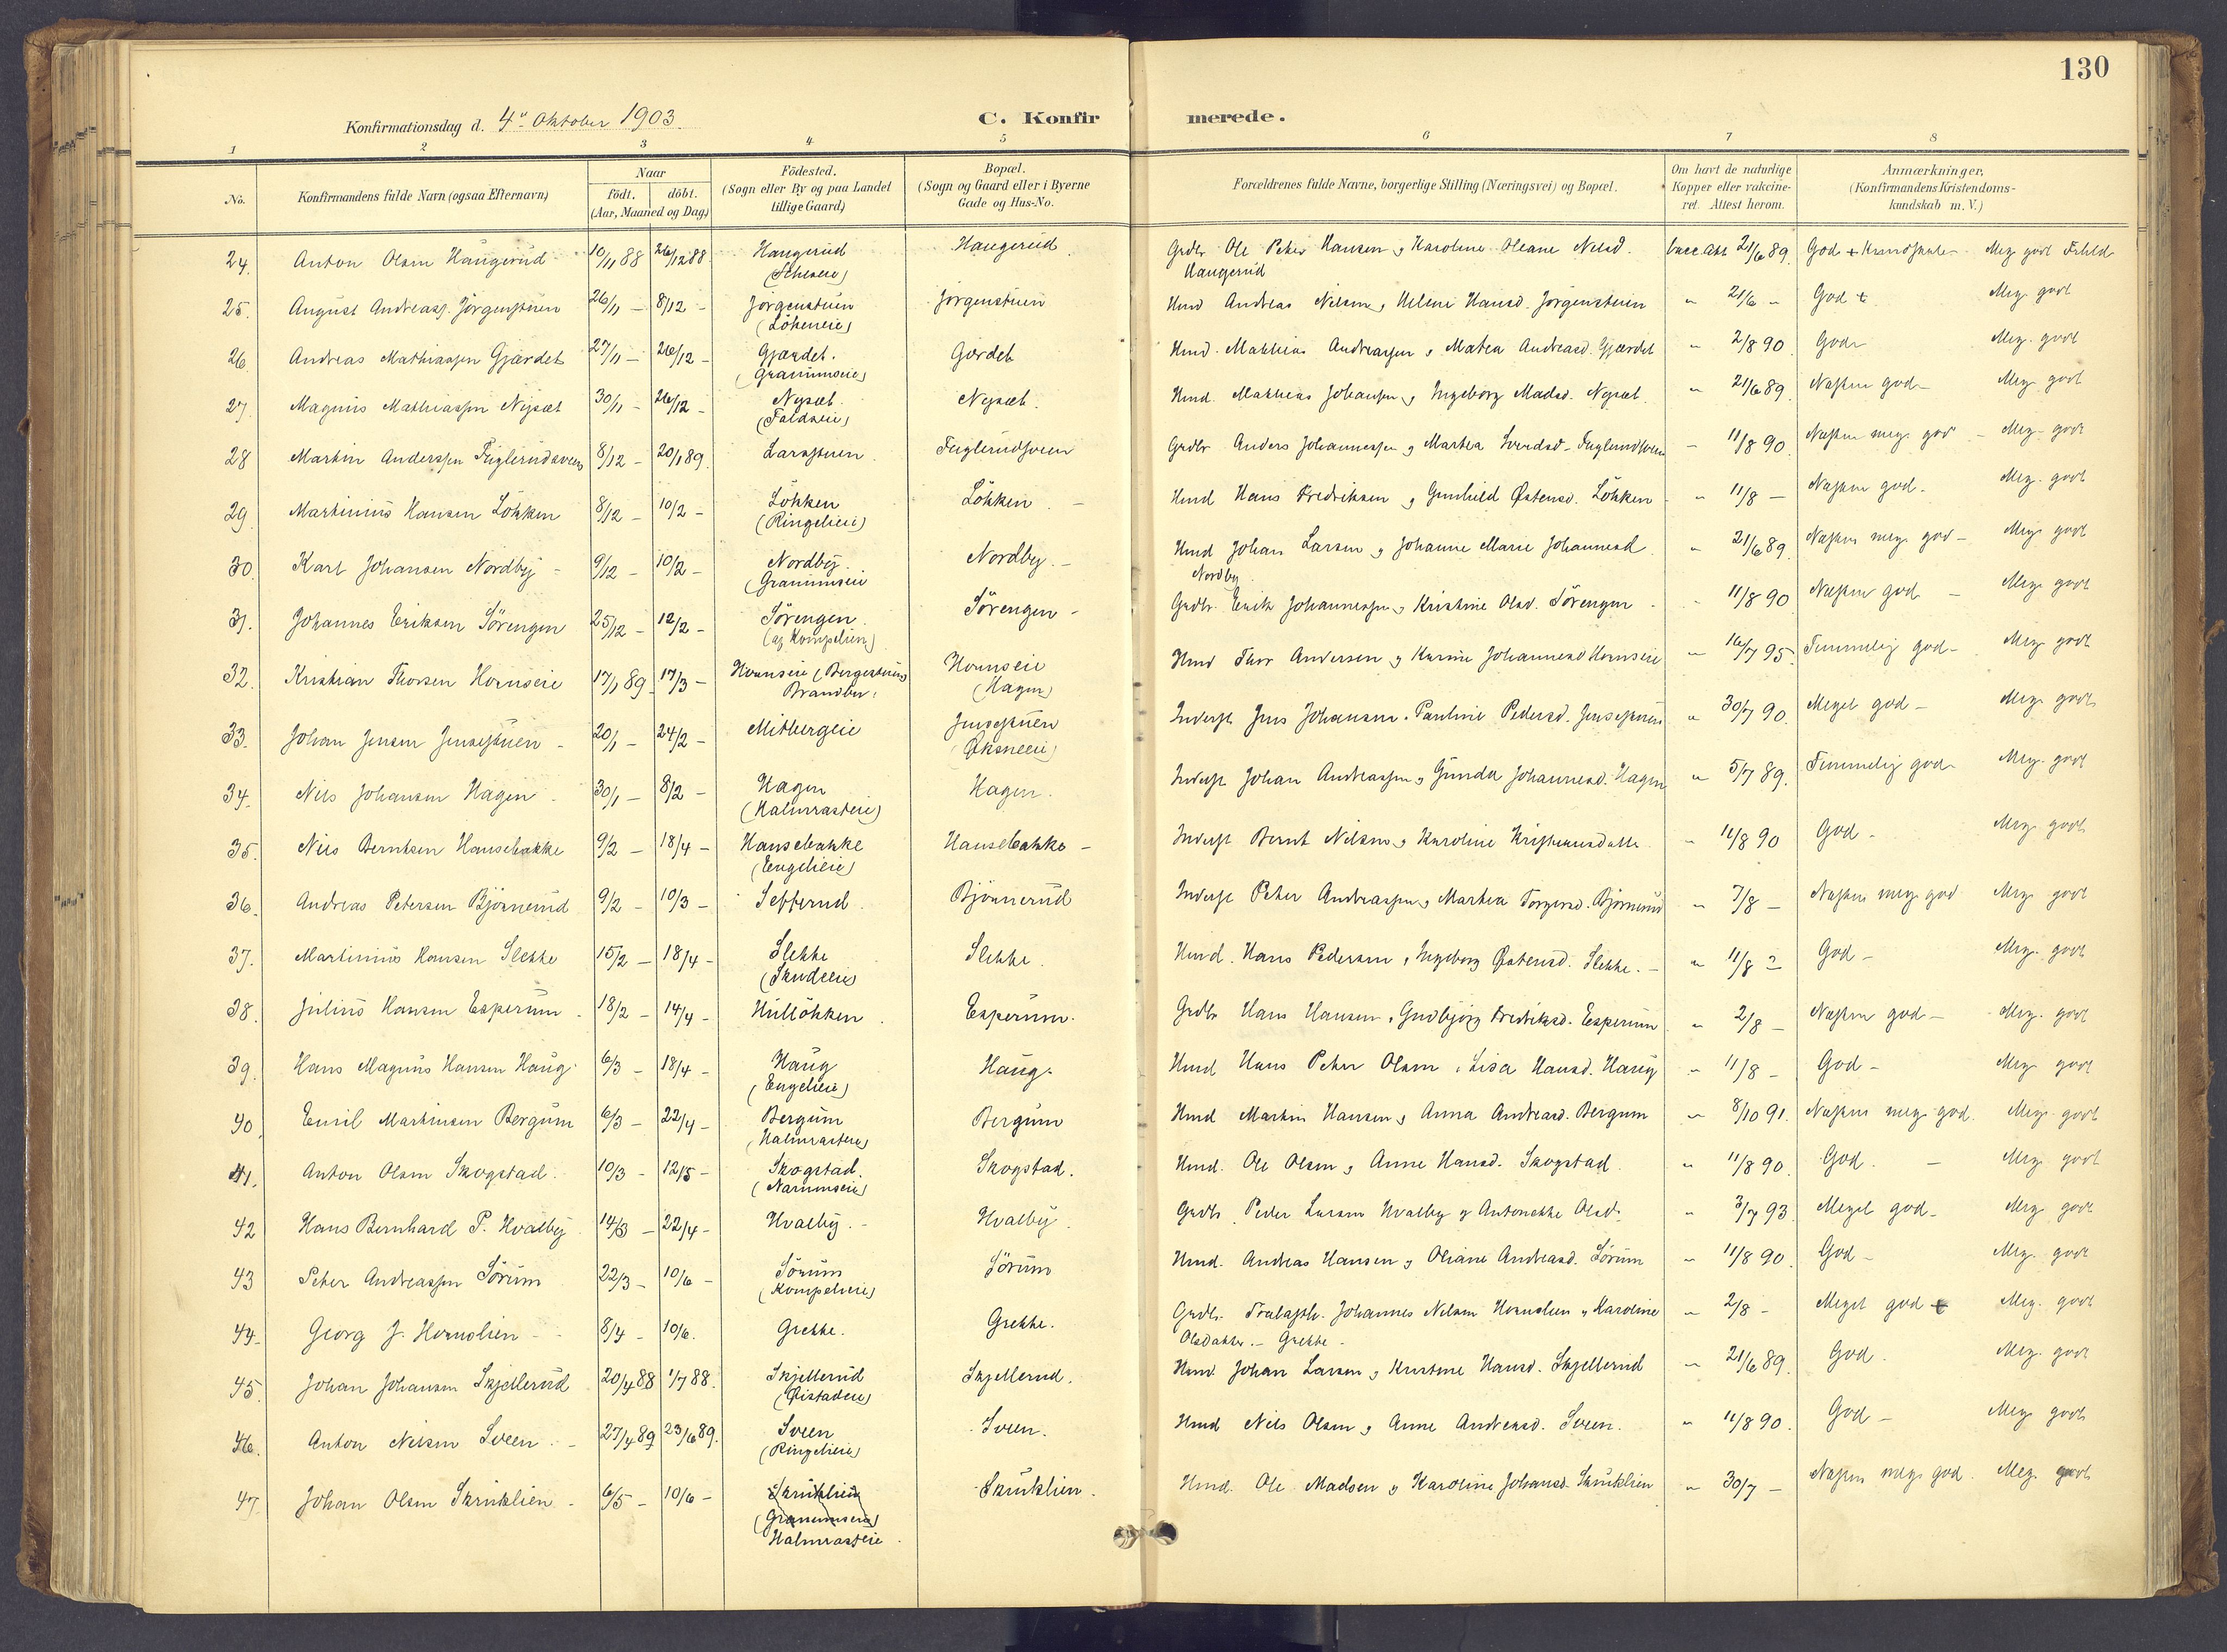 130
Konfirmationsdag d. 4de Oktober 1903.
C. Konfirmerede.
1 2 3 4 5 6 7 8
No.
Konfirmandens fulde Navn (ogsaa Efternavn)
Naar
födt. döbt.
(Aar, Maaned og Dag)
Födested.
(Sogn eller By og paa Landet
tillige Gaard)
Bopæl.
(Sogn og Gaard eller i Byerne
Gade og Hus-No.
Forældrenes fulde Navne, borgerlige Stilling (Næringsvei) og Bopæl.
Om havt de naturlige
Kopper eller vakcine-
ret. Attest herom.
Anmærkninger,
(Konfirmandens Kristendoms-
kundskab m.V.)
24. Anton Olsen Haugerud 10/11 88 26/12 88. Haugerud Haugerud. Grdbr Ole Peter Hansen & Karoline Oleane Nelsd. vacc. att 21/6 89. God Kundskab - Meg. godt Forhold
Haugerud
25. August Andreass. Jörgenstuen 26/11 - 8/12 - Jörgenstuen Jörgenstuen Hmd Andreas Nilsen & Helene Hansd. Jörgenstuen " 21/6 - God Meg. godt
(Lökeneie)
26. Andreas Mathiassen Gjærdet 27/11 - 26/12 - Gjærdet. Gærdet Hmd. Mathias Andreassen & Matea Andreasd. Gjærdet " 2/8 90. God - Meg. godt
(Granumseie)
27. Magnus Mathiassen Nysæt 30/11 - 26/12 - Nysæt. Nysæt. Hmd. Mathias Johansen & Ingeborg Madsd. Nysæt. " 21/6 89. Næsten god - Meg. godt
(Faldseie)
28 Martin Anderssen Fuglerudsveen 8/12 - 20/1 89. Larsstuen. Fuglerudsveen Grdbr Anders Johannessen & Martea Sverdsd. Fuglerudsveen - 11/8 90. Næsten meg. god - Meg. godt
29. Martinius Hansen Lökken 8/12 - 10/2 - Lökken Lökken. - Hmd Hans Fredriksen & Gunhild Østensd. Lökken - " 11/8 - Næsten god. Meg. godt
(Ringelieie)
30. Karl Johansen Nordby - 9/12 - 10/2 - Nordby. Nordby. - Hmd Johan Larsen & Johanne Marie Johannesd. " 21/6 89. Næsten meg. god - Meg. godt
(Granumseie Nordby.
31. Johannes Eriksen Sörengen 25/12 - 12/2 - Sörengen. Sörengen - Grdbr. Erik Johannessen & Kristine Olsd. Sörengen - - 11/8 90 Næsten god - Meg. godt
(af Kompelien)
32. Kristian Thorsen Hornseie 17/1 89. 17/3 - Hornseie (Bergestuen) Hornseie Hmd Thor Andersen & Karine Johannesd Hornseie " 16/7 95. Temmelig god - Meg. godt
Brandbu. (Hagen)
33. Johan Jensen Jensestuen - 20/1 - 24/2 - Mitbergeie Jensestuen Inderst Jens Johansen & Pauline Pedersd. Jensestuen " 30/7 90. Meget god - Meg. godt
(Øksneeie)
34. Nils Johansen Hagen. 30/1 - 8/2 - Hagen Hagen. Inderst Johan Andreassen & Gunda Johannesd. Hagen " 5/7 89. Temmelig god Meg. godt
(Halmrasteie)
35. Nils Berntsen Hansebakke 9/2 - 18/4 - Hansebakke Hansebakke - Inderst Bernt Nilsen & Karoline Kristiansdatter. - 11/8 90 God - Meg. godt
(Engelieie)
36. Andreas Petersen Björnerud 9/2 - 10/3 - Sefferud. Björnerud Inderst Peter Andreassen & Martea Torgersd. Björnerud " 7/8 - Næsten meg. god Meg. godt
37. Martinius Hansen Slekke 15/2 - 18/4 - Slekke Slekke. Hmd. Hans Pedersen & Ingeborg Østensd. Slekke. - " 11/8 - God - Meg. godt
38. Julius Hansen Esperum - 18/2 - 14/4 - Hullökken. Esperum. Grdbr Hans Hansen & Gudbjørg Fredriksd. Esperum. " 2/8 - Næsten god - Meg. godt
39. Hans Magnus Hansen Haug. 6/3 - 18/4 - Haug Haug. Hmd Hans Peter Olsen & Lisa Hansd. Haug " 11/8 - God - Meg. godt
(Engelieie)
40. Emil Martinsen Bergum 6/3 - 22/4 - Bergum Bergum Hmd Martin Hansen & Anna Andreasd. Bergum " 8/10 91. Næsten meg. god. Meg. godt
(Halmrasteie)
41. Anton Olsen Skogstad. 10/3 - 12/5 - Skogstad. Skogstad. Hmd. Ole Olsen & Anne Hansd. Skogstad. " 11/8 90. God. - Meg. godt
(Narumseie)
42 Hans Bernhard P. Hvalby. 14/3 - 22/4 - Hvalby. - Hvalby. Grdbr. Peder Larsen Hvalby & Antonette Olsd. " 3/7 93. Meget god - Meg. godt
43 Peter Andreassen Sörum 22/3 - 10/6 - Sörum Sörum Hmd. Andreas Hansen & Oliane Andreasd. Sörum - 11/8 90. God - Meg. godt
(Kompelieie)
44. Georg J. Hornslien - - 8/4 - 10/6. Grette. Grette. Grdbr. Johannes Nelsen Hornslien & Karoline " 2/8 - Meget god Meg. godt
Olsdatter. - Grette -
45. Johan Johansen Skjellerud 20/4 88 1/7 88. Skjellerud Skjellerud. Hmd. Johan Larsen & Kristine Hansd. Skjellerud - 21/6 89. God. Meg. godt
(Øistadeie)
46. Anton Nelsen Sveen. - 27/4 89 23/6 89. Sveen Sveen. Hmd Nils Olsen & Anne Andreasd. Sveen. " 11/8 90. God - Meg. godt
(Ringelieie)
47. Johan Olsen Skruklien - 6/5 - 10/6 - Skruklien Skruklien. Hmd. Ole Madsen & Karoline Johansd. Skruklien " 30/7 - Næsten meg. god. Meg. godt
(Granumseie)
Halmrasteie.